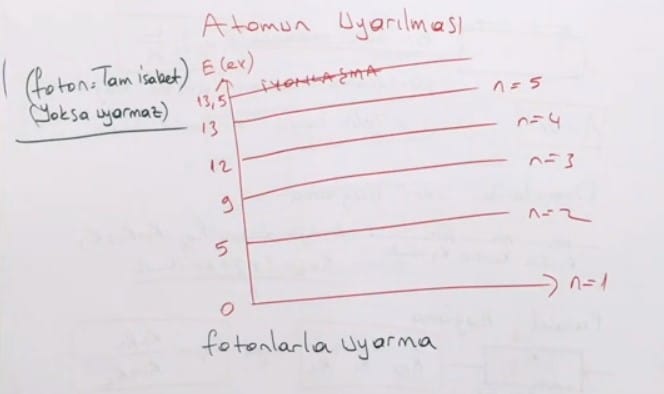 Atomun Uyarılması
(foton=Tam isabet)
(Yoksa uyarmaz)
E(ev)
13,5 İYONLAŞMA
13 n=5
12 n=4
9 n=3
5 n=2
0 n=1
fotonlarla uyarma